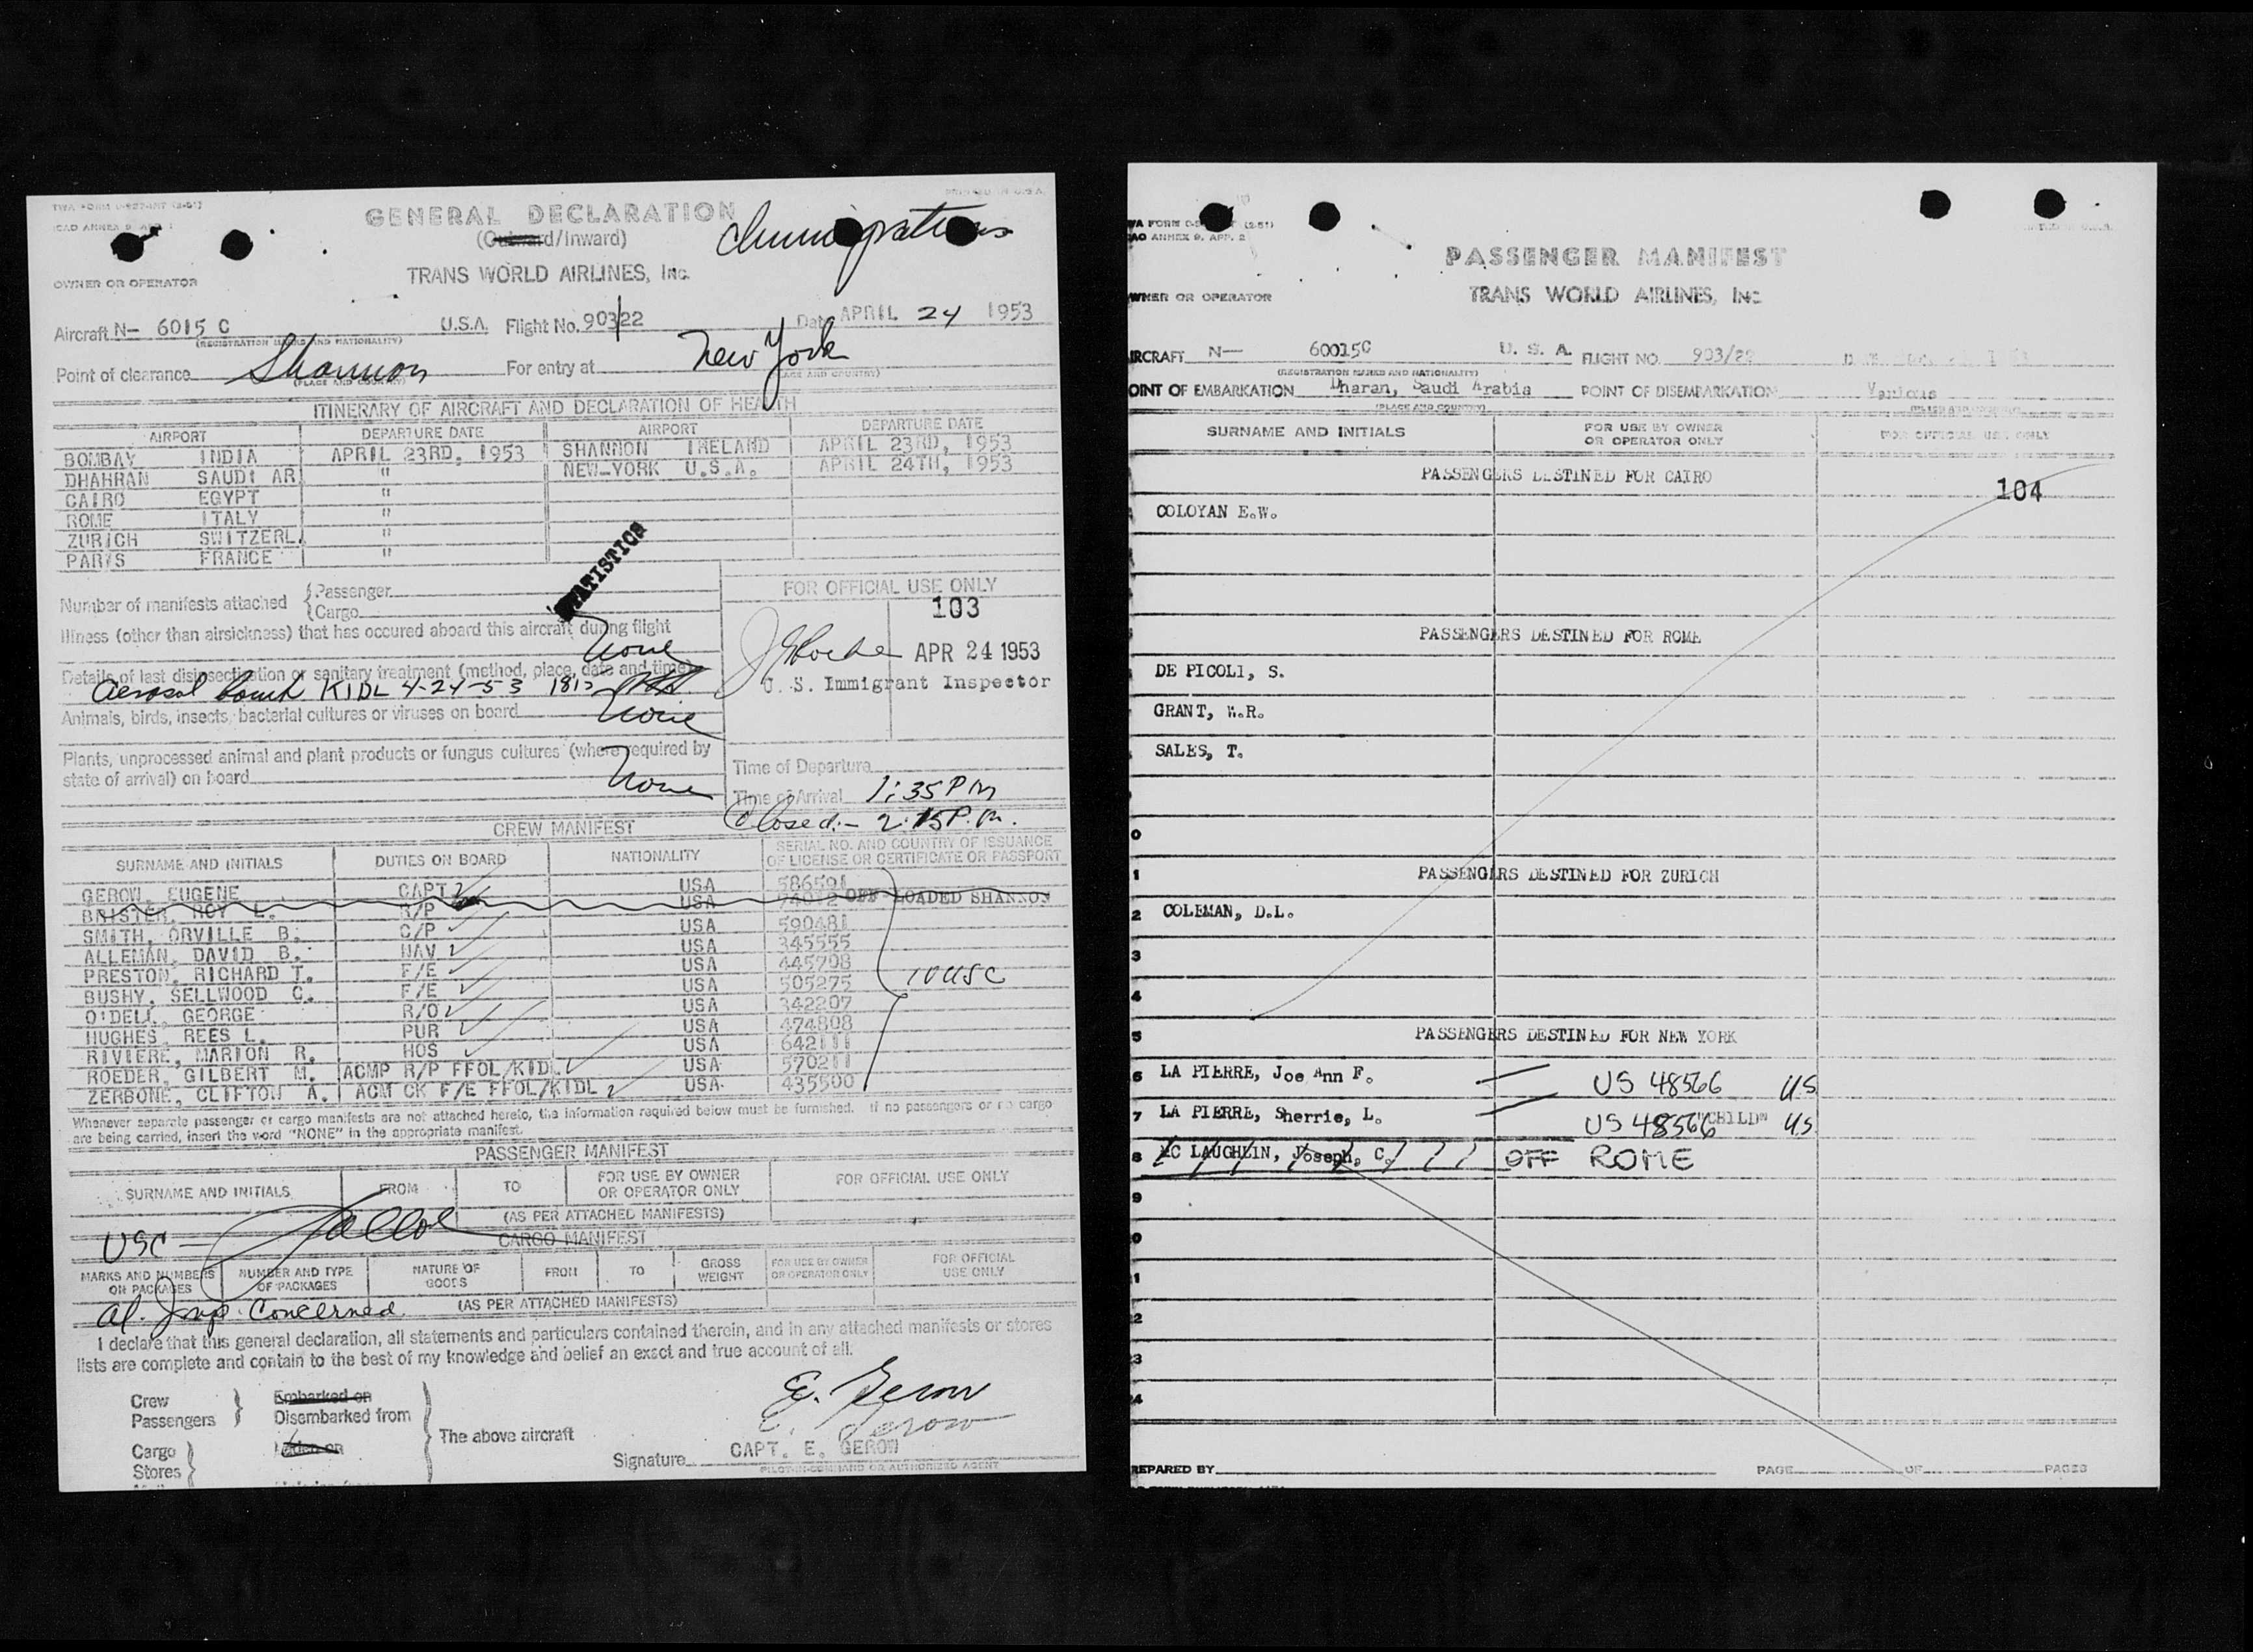 GENERAL DECLARATION
(Outward/Inward)
TRANS WORLD AIRLINES, Inc.
OWNER OR OPERATOR
Aircraft N- 6015 C U.S.A. Flight No. 903/22 Date APRIL 24 1953
(REGISTRATION MARKS AND NATIONALITY)
Point of clearance Shannon For entry at New York
(PLACE AND COUNTRY) (PLACE AND COUNTRY)
ITINERARY OF AIRCRAFT AND DECLARATION OF HEALTH
AIRPORT DEPARTURE DATE AIRPORT DEPARTURE DATE
BOMBAY INDIA APRIL 23RD, 1953 SHANNON IRELAND APRIL 23RD, 1953
DHAHRAN SAUDI AR " NEW-YORK U.S.A. APRIL 24TH, 1953
CAIRO EGYPT "
ROME ITALY "
ZURICH SWITZERL. "
PARIS FRANCE "
Number of manifests attached {Passenger
{Cargo
Illness (other than airsickness) that has occured aboard this aircraft during flight
None
Details of last disinsectization or sanitary treatment (method, place, date and time)
Aerosol bomb KIDL 4-24-53 1815
Animals, birds, insects, bacterial cultures or viruses on board None
Plants, unprocessed animal and plant products or fungus cultures (where required by
state of arrival) on board None
FOR OFFICIAL USE ONLY
103
APR 24 1953
U. S. Immigrant Inspector
Time of Departure
Time of Arrival 1:35 PM
Closed:- 2:15 P.m.
CREW MANIFEST
SURNAME AND INITIALS DUTIES ON BOARD NATIONALITY SERIAL NO. AND COUNTRY OF ISSUANCE OF LICENSE OR CERTIFICATE OR PASSPORT
GEROW, EUGENE CAPT USA 586591
BRISTER, ROY L. R/P USA 74012 OFF-LOADED SHANNON
SMITH, ORVILLE B. C/P USA 590481
ALLEMAN, DAVID B. NAV USA 345555
PRESTON, RICHARD T. F/E USA 445798
BUSHY, SELLWOOD C. F/E USA 505275
O'DELL, GEORGE R/O USA 342207
HUGHES, REES L. PUR USA 474808
RIVIERE, MARION R. HOS USA 642111
ROEDER, GILBERT M. ACMP R/P FFOL/KIDL USA 570211
ZERBONE, CLIFTON A. ACM CK F/E FFOL/KIDL USA 435500
10 USC
Whenever separate passenger or cargo manifests are not attached hereto, the information required below must be furnished. If no passengers or no cargo
are being carried, insert the word "NONE" in the appropriate manifest.
PASSENGER MANIFEST
SURNAME AND INITIALS FROM TO FOR USE BY OWNER OR OPERATOR ONLY FOR OFFICIAL USE ONLY
(AS PER ATTACHED MANIFESTS)
USC
CARGO MANIFEST
MARKS AND NUMBERS ON PACKAGES NUMBER AND TYPE OF PACKAGES NATURE OF GOODS FROM TO GROSS WEIGHT FOR USE BY OWNER OR OPERATOR ONLY FOR OFFICIAL USE ONLY
(AS PER ATTACHED MANIFESTS)
Concerned
I declare that this general declaration, all statements and particulars contained therein, and in any attached manifests or stores
lists are complete and contain to the best of my knowledge and belief an exact and true account of all:
Crew
Passengers
Embarked on
Disembarked from
Cargo
Stores
Laden on
The above aircraft
E. Gerow
E. Gerow
Signature CAPT. E. GEROW
PILOT-IN-COMMAND OR AUTHORIZED AGENT
PASSENGER MANIFEST
WNER OR OPERATOR TRANS WORLD AIRLINES, Inc
IRCRAFT N— 60015C U. S. A. FLIGHT NO. 903/22
(REGISTRATION MARKS AND NATIONALITY)
OINT OF EMBARKATION Dharan, Saudi Arabia POINT OF DISEMBARKATION Various
(PLACE AND COUNTRY)
SURNAME AND INITIALS FOR USE BY OWNER OR OPERATOR ONLY FOR OFFICIAL USE ONLY
PASSENGERS DESTINED FOR CAIRO
104
COLOYAN E.W.
PASSENGERS DESTINED FOR ROME
DE PICOLI, S.
GRANT, W.R.
SALES, T.
0
1 PASSENGERS DESTINED FOR ZURICH
2 COLEMAN, D.L.
3
4
5 PASSENGERS DESTINED FOR NEW YORK
6 LA PIERRE, Joe Ann F. US 48566 US
7 LA PIERRE, Sherrie, L. US 48566 "CHILD" US
8 MC LAUGHLIN, Joseph, C. OFF ROME
9
0
1
2
3
4
REPARED BY PAGE OF PAGES